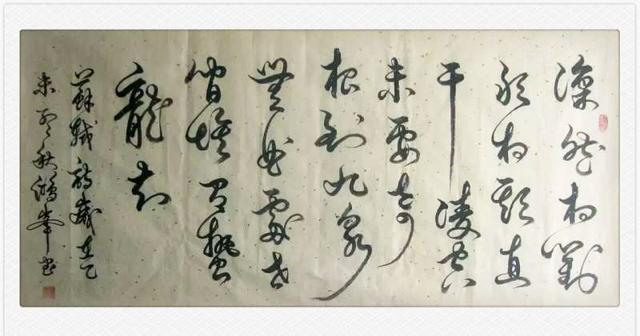 凜然相對
敢相欺直
干凌空
未要奇
根到九泉
無曲處世
間惟有蟄
龍知
蘇軾詩歲在乙
未秋鴻峰書